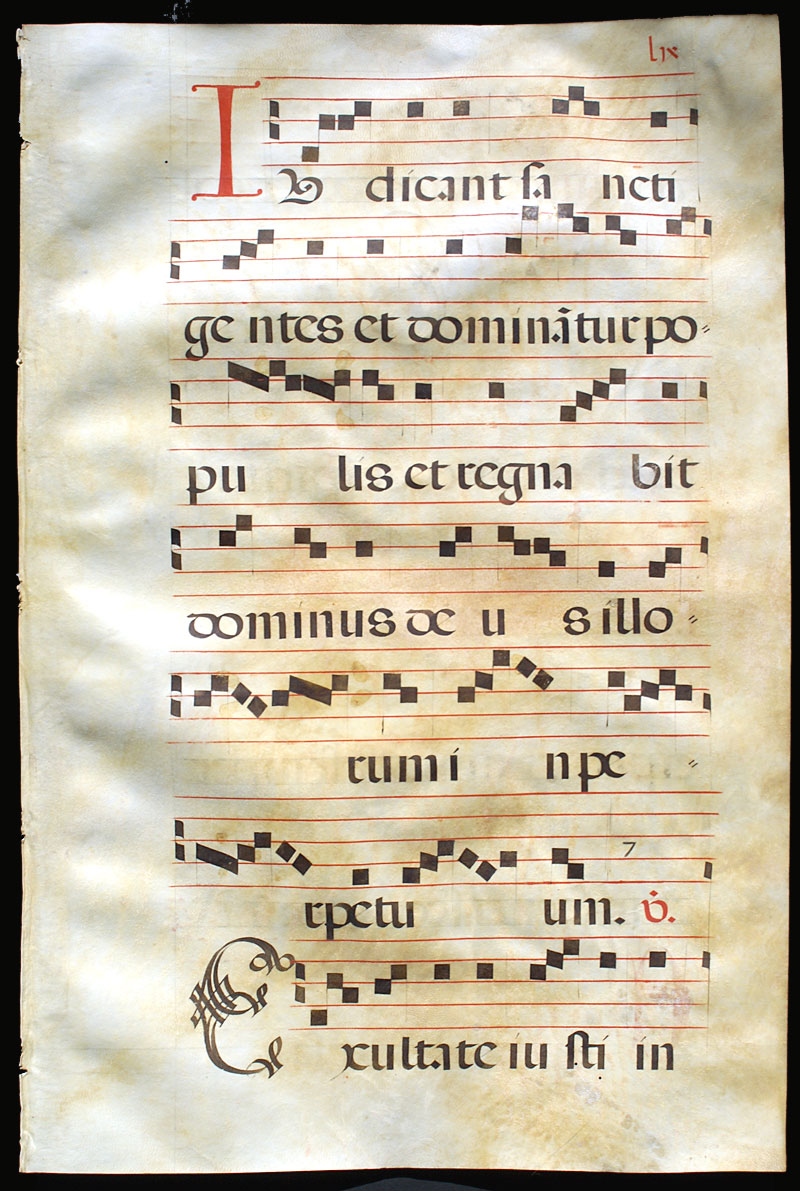 lix
Iudicant sancti
gentes et dominãtur po=
pulis et regnabit
dominus deus illo=
rum in pe=
rpetuum. v̇.
Exultate iusti in